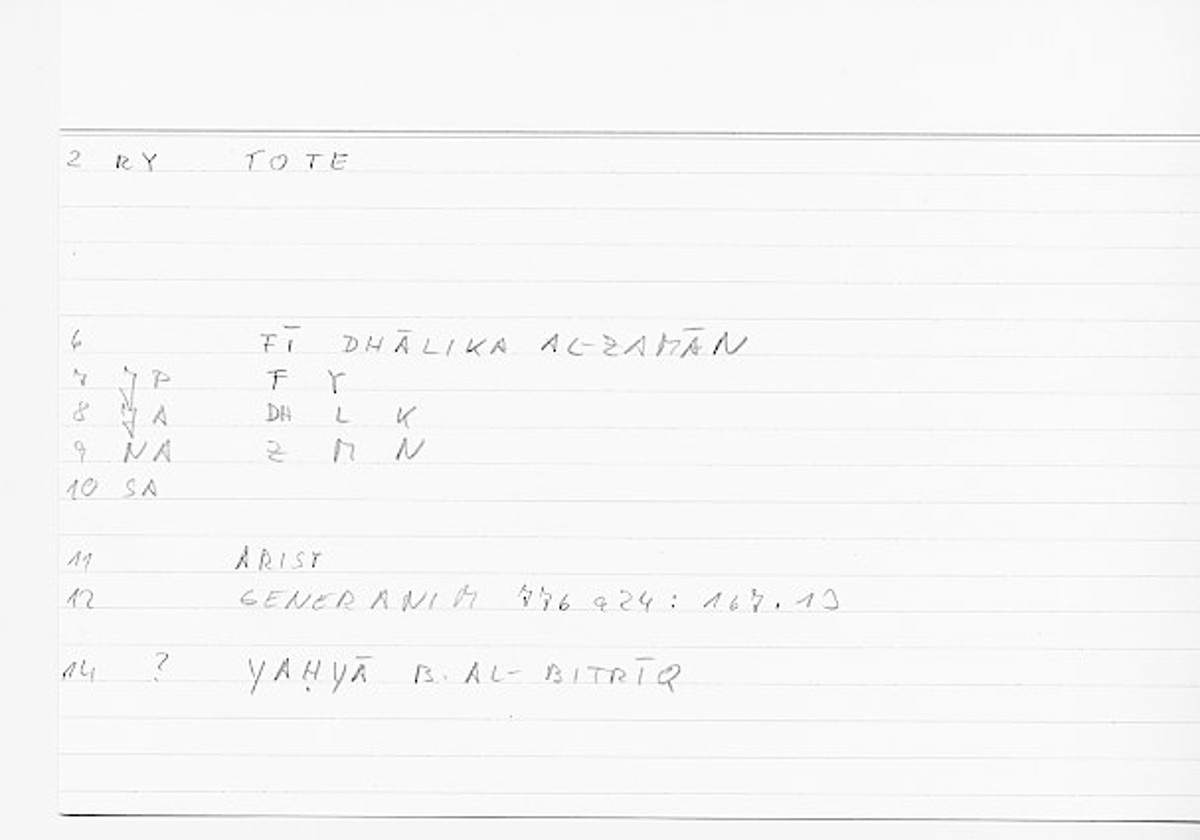 2 RY TOTE
6 FĪ DHĀLIKA AL-ZAMĀN
7 JP F Y
8 JA DH L K
9 NA Z M N
10 SA
11 ARIST
12 GENER ANIM 776 a24: 167.13
14 ? YAḤYĀ B. AL-BITRĪQ